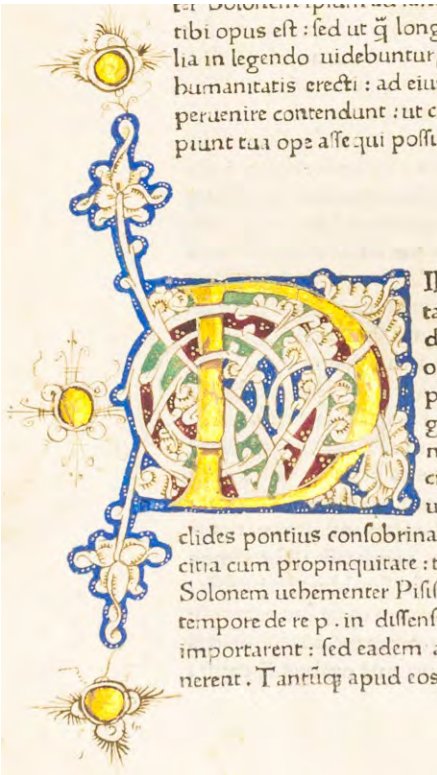 ter Solonem ipsum ad
tibi opus eſt : ſed ut q̃ long
lia in legendo uidebuntur
humanitatis erecti : ad eiu
peruenire contendunt : ut c
piunt tua ope aſſequi poſſu
D
ta
d
o
p
g
n
c
u
clides pontius conſobrina
citia cum propinquitate : t
Solonem uehementer Piſiſ
tempore de re p . in diſſenſ
importarent : ſed eadem a
nerent . Tantūq; apud eos